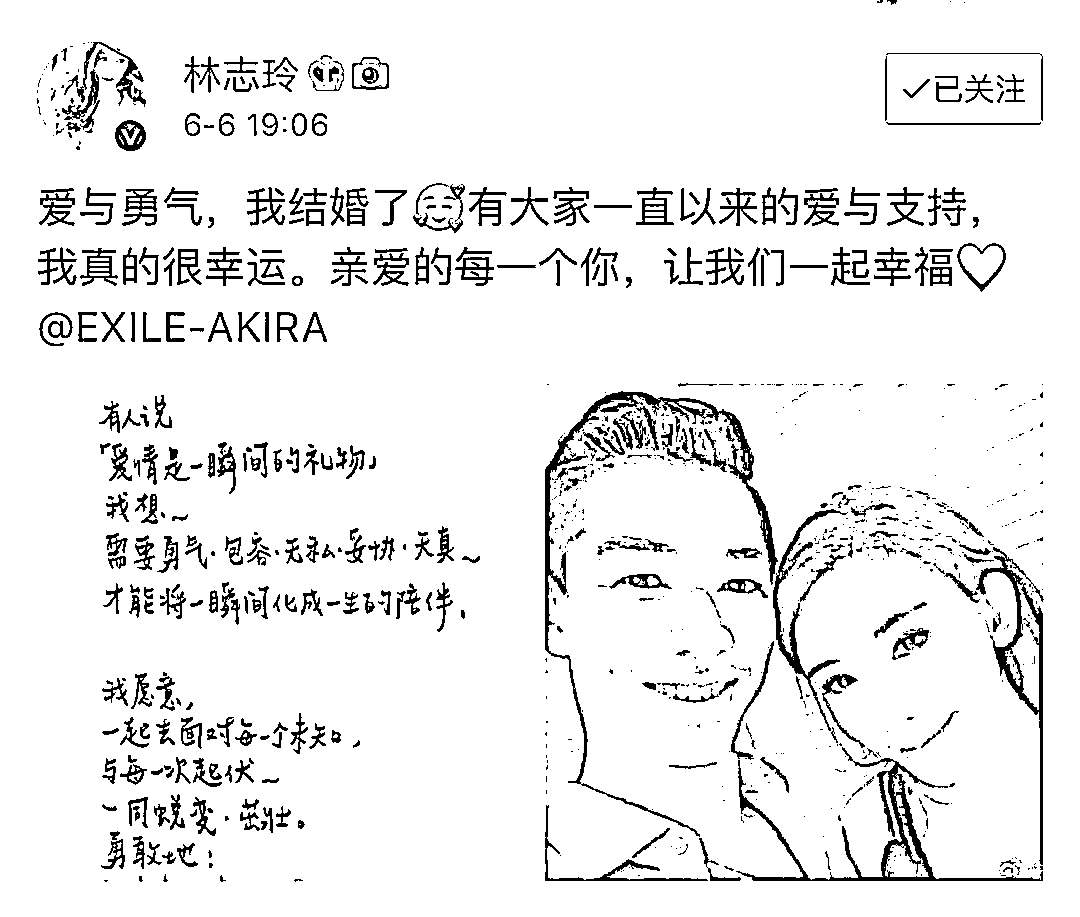 林志玲
6-6 19:06
已关注
爱与勇气，我结婚了🥰有大家一直以来的爱与支持，
我真的很幸运。亲爱的每一个你，让我们一起幸福♡
@EXILE-AKIRA
有人说
「爱情是一瞬间的礼物」
我想~
需要勇气·包容·无私·妥协·天真~
才能将一瞬间化成一生的陪伴.
我愿意，
一起去面对每一个未知，
与每一次起伏~
一同蜕变·茁壮。
勇敢地：